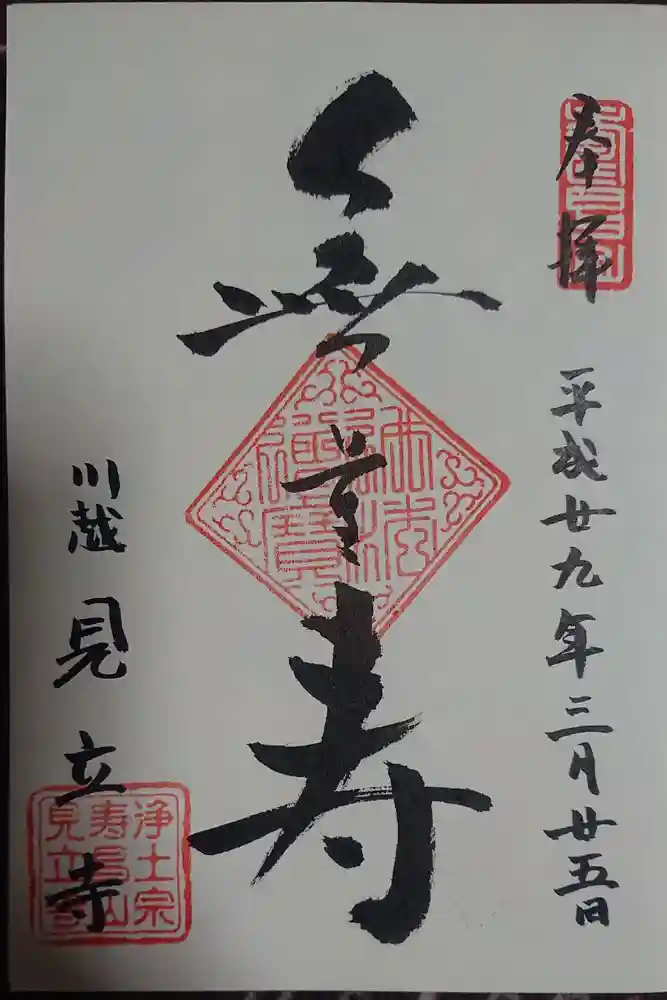 奉拝
平成廿九年三月廿五日
無量寿
川越 見立寺
浄土宗
寿昌山
見立寺